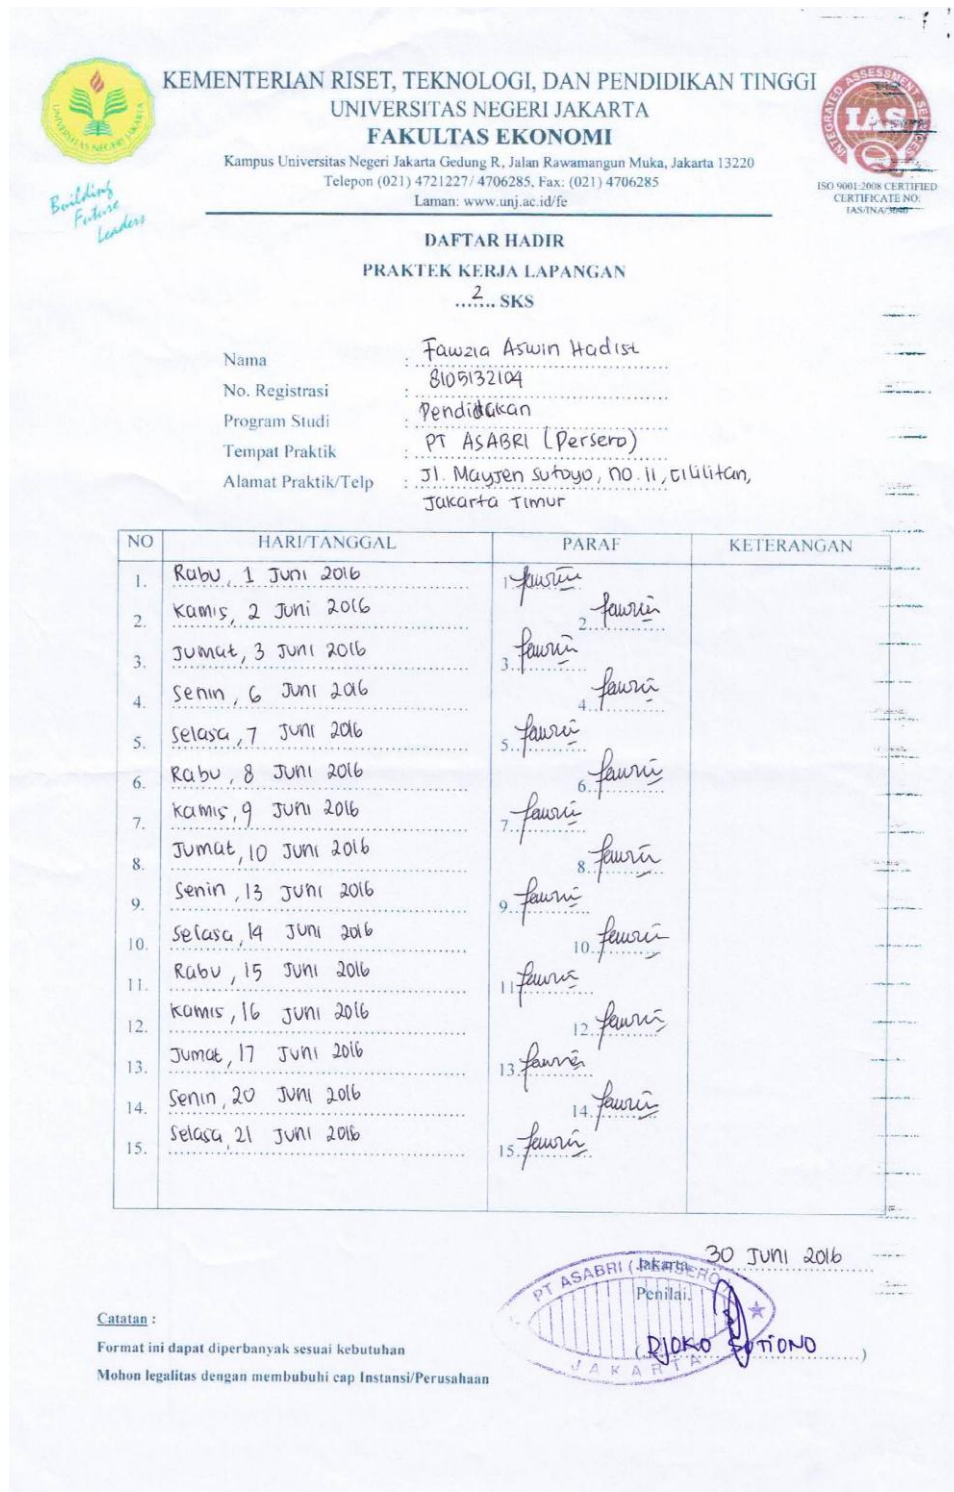 KEMENTERIAN RISET, TEKNOLOGI, DAN PENDIDIKAN TINGGI
UNIVERSITAS NEGERI JAKARTA
FAKULTAS EKONOMI
Kampus Universitas Negeri Jakarta Gedung R, Jalan Rawamangun Muka, Jakarta 13220
Telepon (021) 4721227/ 4706285, Fax: (021) 4706285
Laman: www.unj.ac.id/fe
UNIVERSITAS NEGERI JAKARTA
Building
Future
Leaders
INTEGRATED ASSESSMENT SERVICES
IAS
ISO 9001:2008 CERTIFIED
CERTIFICATE NO:
IAS/INA/
DAFTAR HADIR
PRAKTEK KERJA LAPANGAN
...2.... SKS
Nama : Fawzia Aswin Hadist
No. Registrasi : 8105132104
Program Studi : Pendidikan
Tempat Praktik : PT ASABRI (Persero)
Alamat Praktik/Telp : Jl. Mayjen Sutoyo, no. 11, Cililitan,
Jakarta Timur
NO HARI/TANGGAL PARAF KETERANGAN
1. Rabu, 1 Juni 2016 1.
2. Kamis, 2 Juni 2016 2.
3. Jumat, 3 Juni 2016 3.
4. Senin, 6 Juni 2016 4.
5. Selasa, 7 Juni 2016 5.
6. Rabu, 8 Juni 2016 6.
7. Kamis, 9 Juni 2016 7.
8. Jumat, 10 Juni 2016 8.
9. Senin, 13 Juni 2016 9.
10. Selasa, 14 Juni 2016 10.
11. Rabu, 15 Juni 2016 11.
12. Kamis, 16 Juni 2016 12.
13. Jumat, 17 Juni 2016 13.
14. Senin, 20 Juni 2016 14.
15. Selasa, 21 Juni 2016 15.
Jakarta, 30 Juni 2016
Penilai,
PT ASABRI (PERSERO)
JAKARTA
(DJOKO SUTIONO)
Catatan :
Format ini dapat diperbanyak sesuai kebutuhan
Mohon legalitas dengan membubuhi cap Instansi/Perusahaan